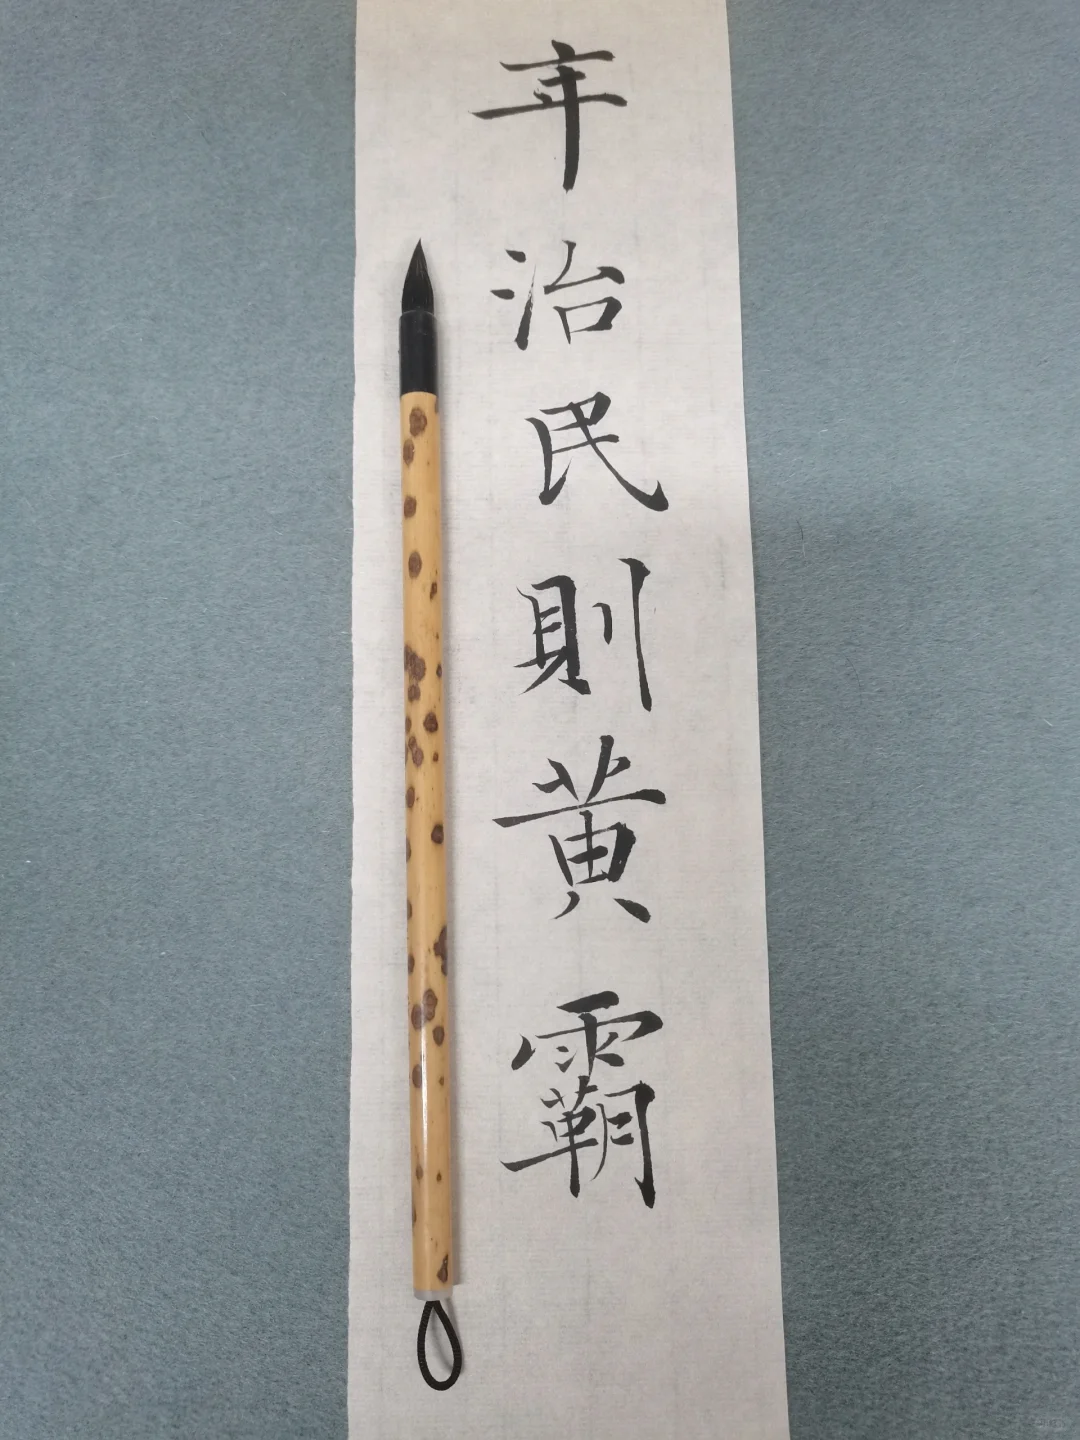 年治民則黄霸